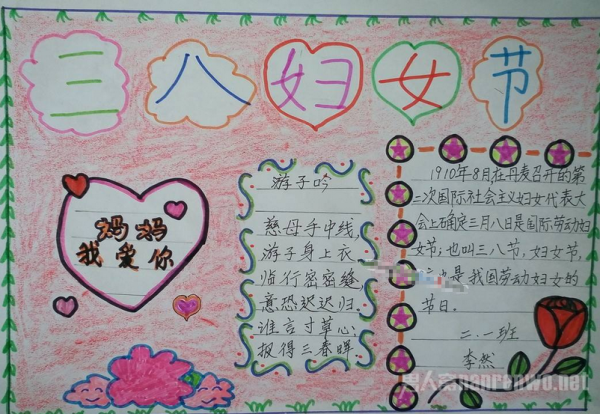 三八妇女节
妈妈
我爱你
游子吟
慈母手中线,
游子身上衣
临行密密缝,
意恐迟迟归
谁言寸草心
报得三春晖
1910年8月在丹麦召开的第
二次国际社会主义妇女代表大
会上确定三月八日是国际劳动妇
女节;也叫三八节,妇女节,
也是我国劳动妇女的
节日。
二.一班
李然